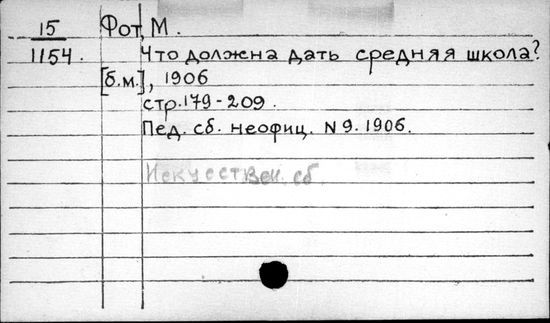 15 Фот, М.
1154. Что должна дать средняя школа?
[б.м.], 1906
стр. 179-209.
Пед. сб. неофиц. N 9. 1906.
Искусствен. сб.